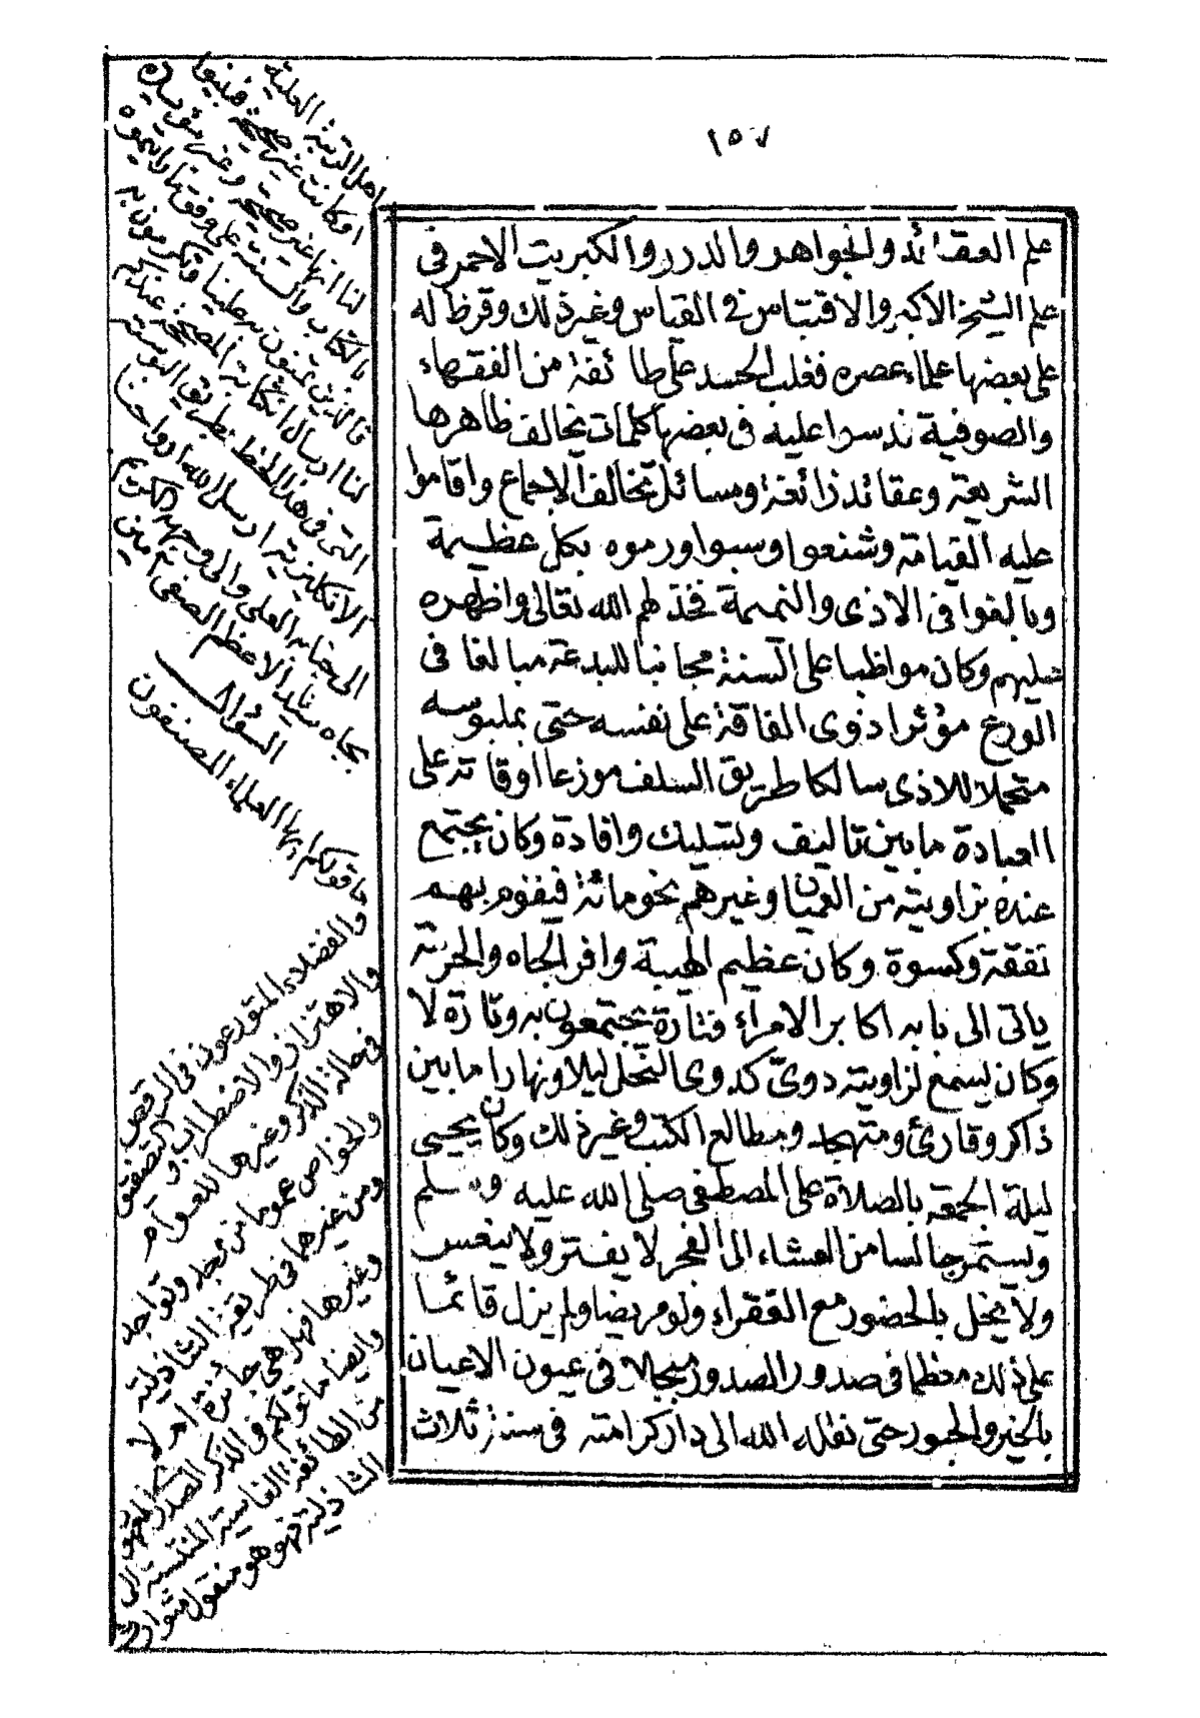 ١٥٧
علم العقائد والجواهر والدرر والكبريت الاحمر فى
علم الشيخ الاكبر والاقتباس فى القياس وغير ذلك وقرظ له
على بعضها علماء عصره فغلب الحسد على طائفة من الفقهاء
والصوفية ندسوا عليه فى بعضها كلمات يخالف ظاهرها
الشريعة وعقائد زائغة ومسائل تخالف الاجماع واقاموا
عليه القيامة وشنعوا وسبوا ورموه بكل عظيمة
وبالغوا فى الاذى والنميمة فخذلهم الله تعالى واظهره
عليهم وكان مواظبا على السنة مجانبا للبدعة مبالغا فى
الورع مؤثرا ذوى الفاقة على نفسه حتى بملبوسه
متحملا للاذى سالكا طريق السلف موزعا اوقاته على
العبادة مابين تاليف وتسليك وافادة وكان يجتمع
عنده بزاويته من العميان وغيرهم نحو مائة فيقوم بهم
نفقة وكسوة وكان عظيم الهيبة وافر الجاه والحرمة
ياتى الى بابه اكابر الامراء فتارة يجتمعون به وتارة لا
وكان يسمع لزاويته دوىّ كدوى النحل ليلا ونهارا مابين
ذاكر وقارئ ومتهجد ومطالع الكتب وغير ذلك وكان يحيى
ليلة الجمعة بالصلاة على المصطفى صلى الله عليه وسلم
ويستمر جالسا من العشاء الى الفجر لا يفتر ولا ينعس
ولا يخل بالحضور مع الفقراء ولو مريضا ولم يزل قائما
على ذلك معظما فى صدور الصدور مبجلا فى عيون الاعيان
بالخير والحبور حتى نقله الله الى دار كرامته فى سنة ثلاث
اهل الرتبة العلية
او كانت غير صحيحة فبنيوا
لنا انها غير صحيحة وغير مؤسسة
بالكتاب والسنة على وفق ما رايتموه
فالذين تمنون به علينا وتكرمون به
لنا ارسال الكتابة المصححة عندكم
التى فى هذا الخط بطريق البوسته
الانكليزية ارسل الله ارواحنا
الى جنابه العلى والى وجهه الكريم
بجاه سيد الاعظم الصفى امين
السؤال ٨
ما قولكم ايها العلماء المصنفون
والفضلاء المتورعون فى الرقص
والاهتزاز والاضطراب والتصفيق
فى حالة الذكر وغيرها للعوام
والخواص عموما من وجد وتواجد
ومن غيرهما فى طريقة الشاذلية
وغيرها فهل هى جائزة ام لا
وايضا ما قولكم فى الذكر الصدرى
من الطائفة الفاسية المنتسبة الى
الشاذلية فهو هو منقول متوارث